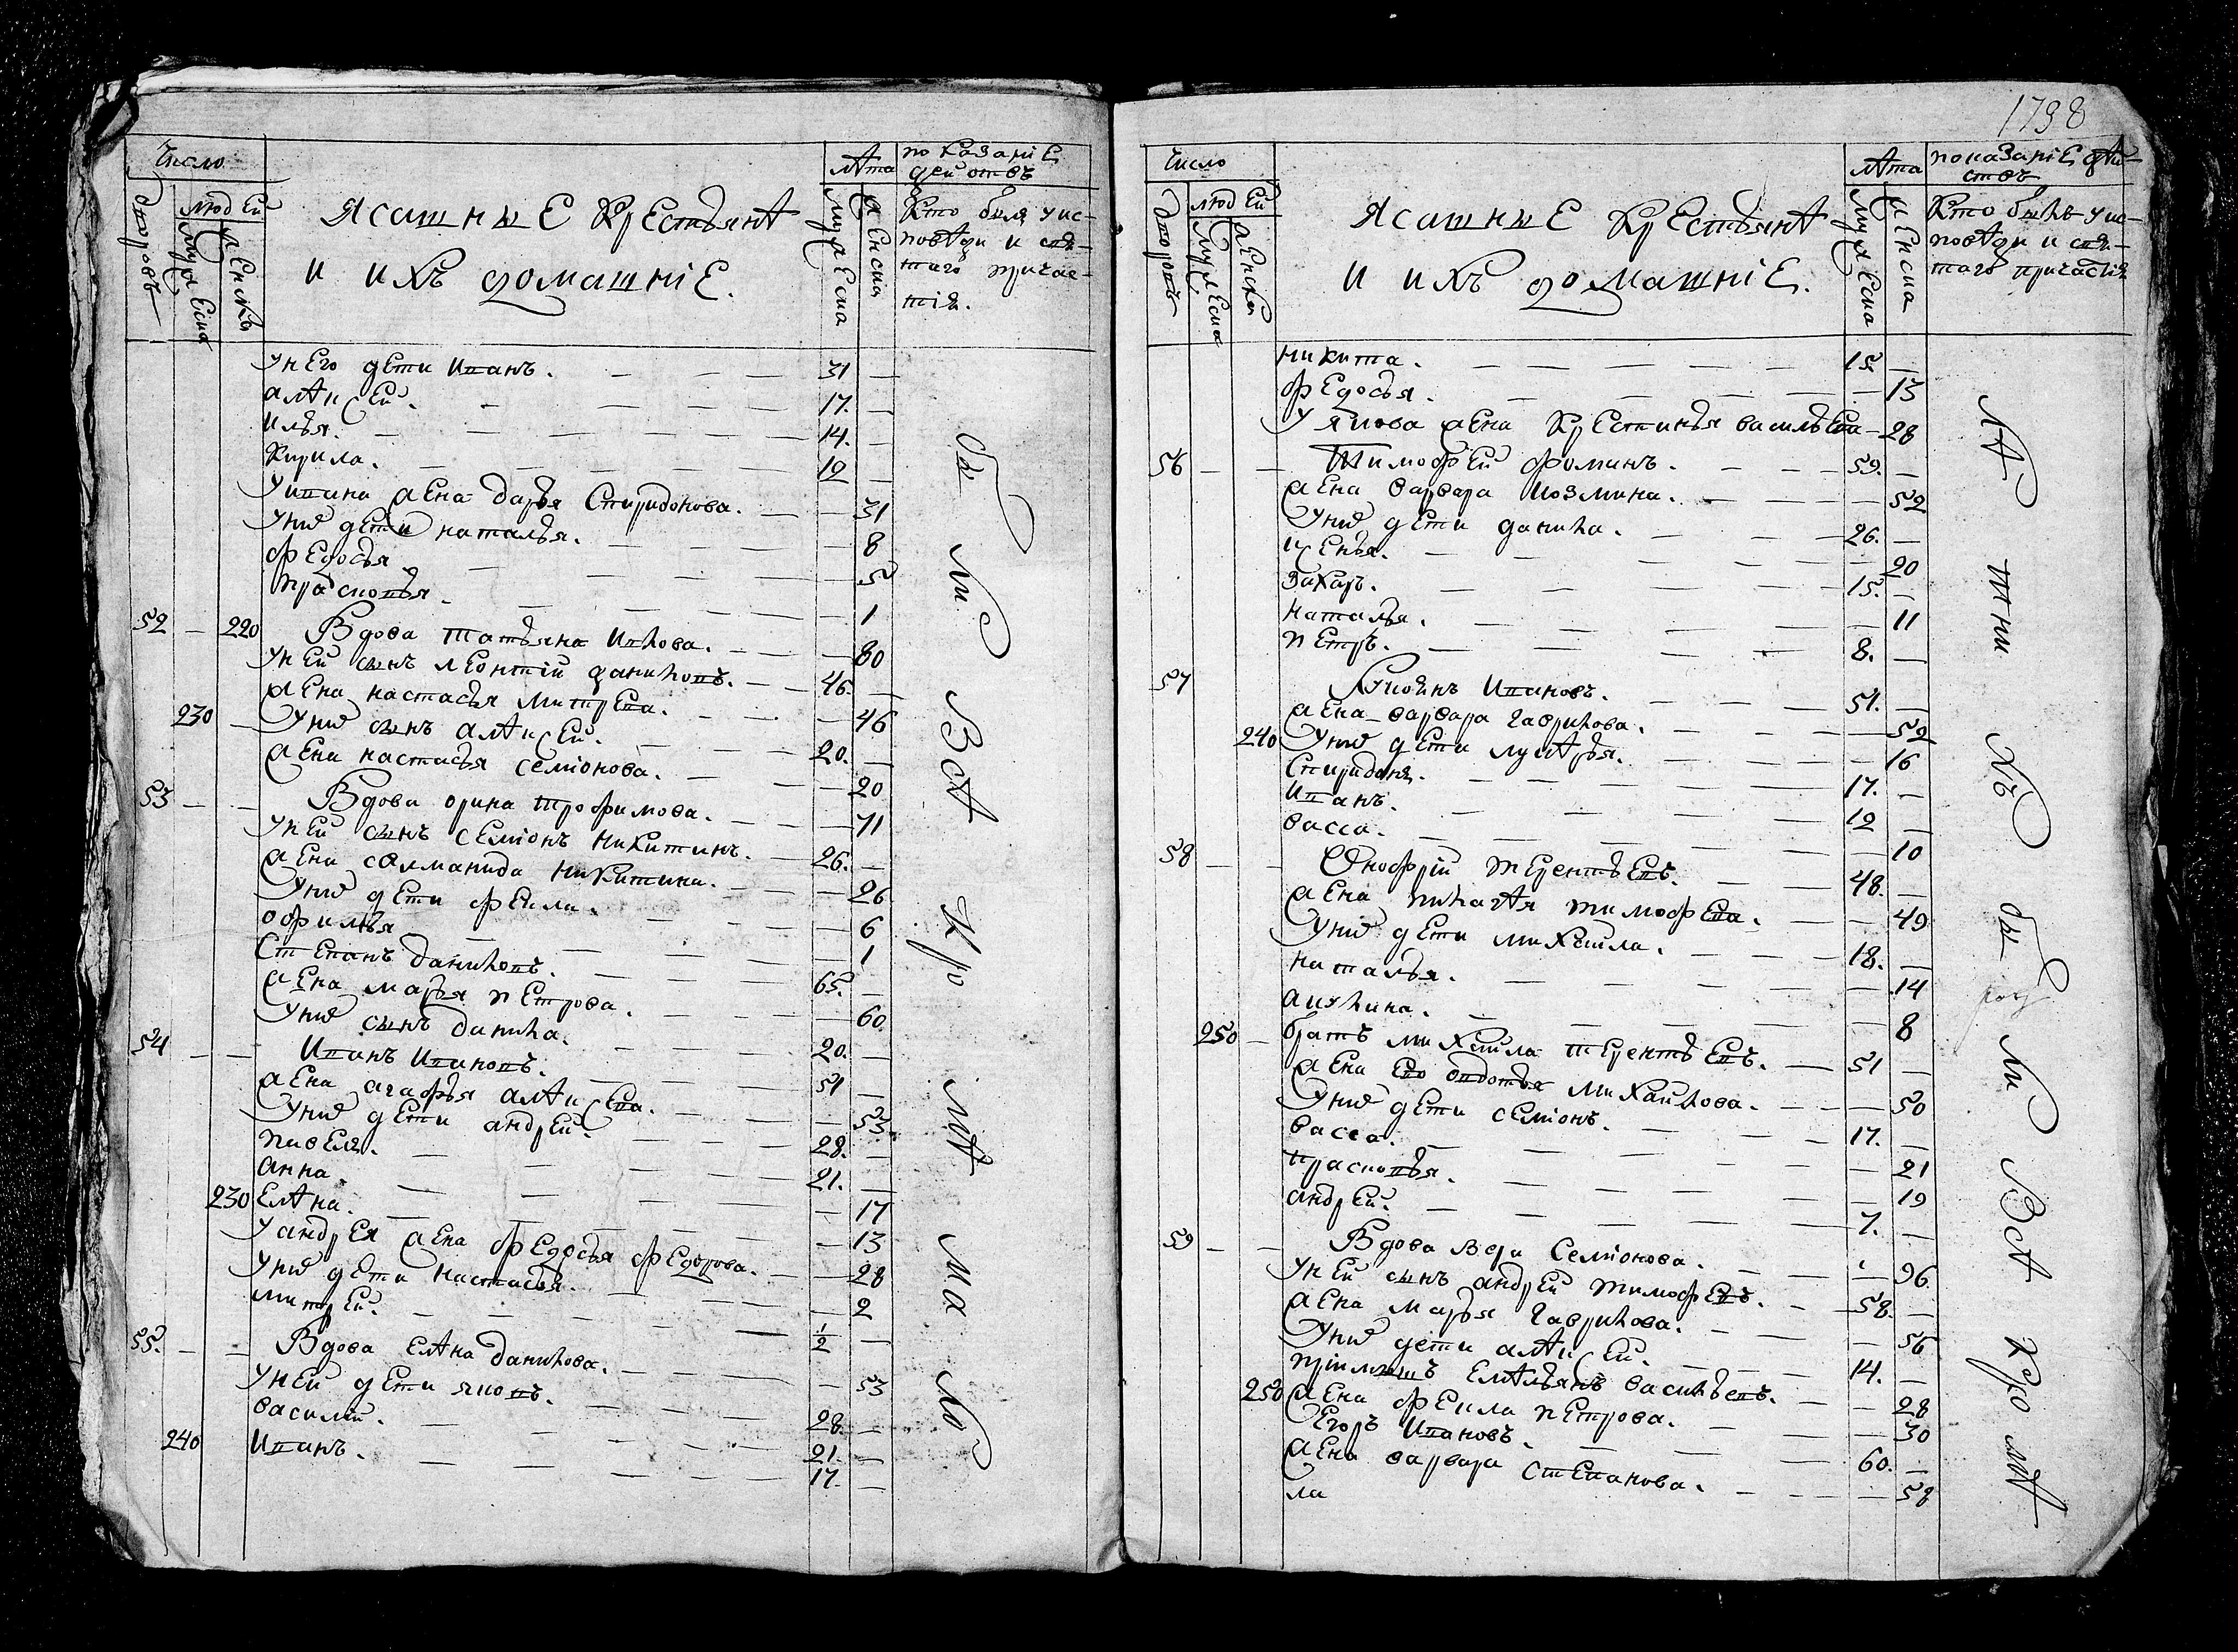 Число
дворовъ
людей
мужеска
женска
Ясашные крестьянѣ
и ихъ домашніе.
лѣта
мужеска
женска
показаніе
действъ
Кто былъ уис-
повѣди и свя-
таго причас-
тія.
унего дети Иванъ. 31 —
алѣксей. 17. —
илья. 14. —
Кирила. 12 —
Уивана жена дарья Спиридонова. — 31
Унихъ дети наталья. — 8
федосья. — 5
прасковья. — 1
52 — 220 Вдова татьяна Ивлова. — 80
Уней сынъ леонтій даниловъ. 46. —
жена настасья митрева. — 46
230 — Унихъ сынъ алѣксей. 20. —
жена настасья семіонова. — 20
53 — — Вдова орина трофимова. — 71
Уней сынъ семіонъ никитинъ. 26. —
жена соломанида никитина. — 26
Унихъ дети фекла. — 6
офимья — 1
Степанъ даниловъ. 65. —
жена марья петрова. — 60.
Унихъ сынъ данила. 20. —
54 — — Иванъ Ивановъ. 51 —
жена агафья алѣксева. — 53.
Унихъ дети андрей. 28. —
павелъ. 21. —
анна. — 17
230 Елѣна. — 13
Уандрея жена федосья федорова. — 28
Унихъ дети настасья. — 2
митрей. 1/2 —
55. — — Вдова Елѣна данилова. — 53
Уней дети яковъ. 28. —
василій. 21. —
240 Иванъ. 17. —
бы
ли
Всѣ
Кро
мѣ
ма
ло
1798
Число
дворовъ
людей
мужеска
женска
Ясашные крестьянѣ
и ихъ домашніе.
лѣта
мужеска
женска
показаніе дѣй-
ствъ
Кто былъ уис-
повѣди и свя-
таго причастія
никита. 15. —
федосья. — 13
Уякова жена Крестинья васильева — 28
56 — — Тимофей фоминъ. 59. —
жена варвара козмина. — 52
Унихъ дети данила. 26. —
ксенья. — 20
Захаръ. 15. —
наталья. — 11
петръ. 8. —
57 Лукоянъ Ивановъ. 51. —
жена варвара гаврилова. — 52
240 Унихъ дети лукѣрья. — 16
Спиридонъ. 17. —
Иванъ. 12 —
васса. — 10
58 — — Онофрій терентьевъ. 48. —
жена пилагѣя тимофева. — 49
Унихъ дети михайла. 18. —
наталья. — 14
акулина. — 8
250 — братъ михайла терентьевъ. 51 —
жена его овдотья михайлова. — 50
Унихъ дети семіонъ. 17. —
васса. — 21
прасковья. — 19
андрей. 7. —
59 — — Вдова вера Семіонова. — 96
Уней сынъ андрей тимофевъ. 58. —
жена марья гаврилова. — 56
Унихъ дети алѣксей. 14. —
пріимышъ Емѣльянъ васильевъ. — 28
250 жена фекла петрова. — 30
Егоръ Ивановъ. 60. —
жена варвара степанова. — 58
ла
лѣ
тни
хъ
бы
ли
Всѣ
Кро
мѣ